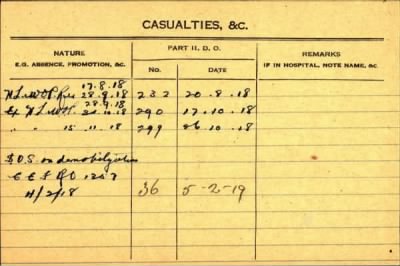 CASUALTIES, &C.
NATURE
E.G. ABSENCE, PROMOTION, &C.
PART II. D. O.
NO.
DATE
REMARKS
IF IN HOSPITAL, NOTE NAME, &C.
17.8.18
28.9.18 232 20.8.18
28.9.18
Ex 290 17.10.18
" " 15.11.18 299 26.10.18
S.O.S. on demobilization
C E F RO 1207
4/2/18 36 5-2-19